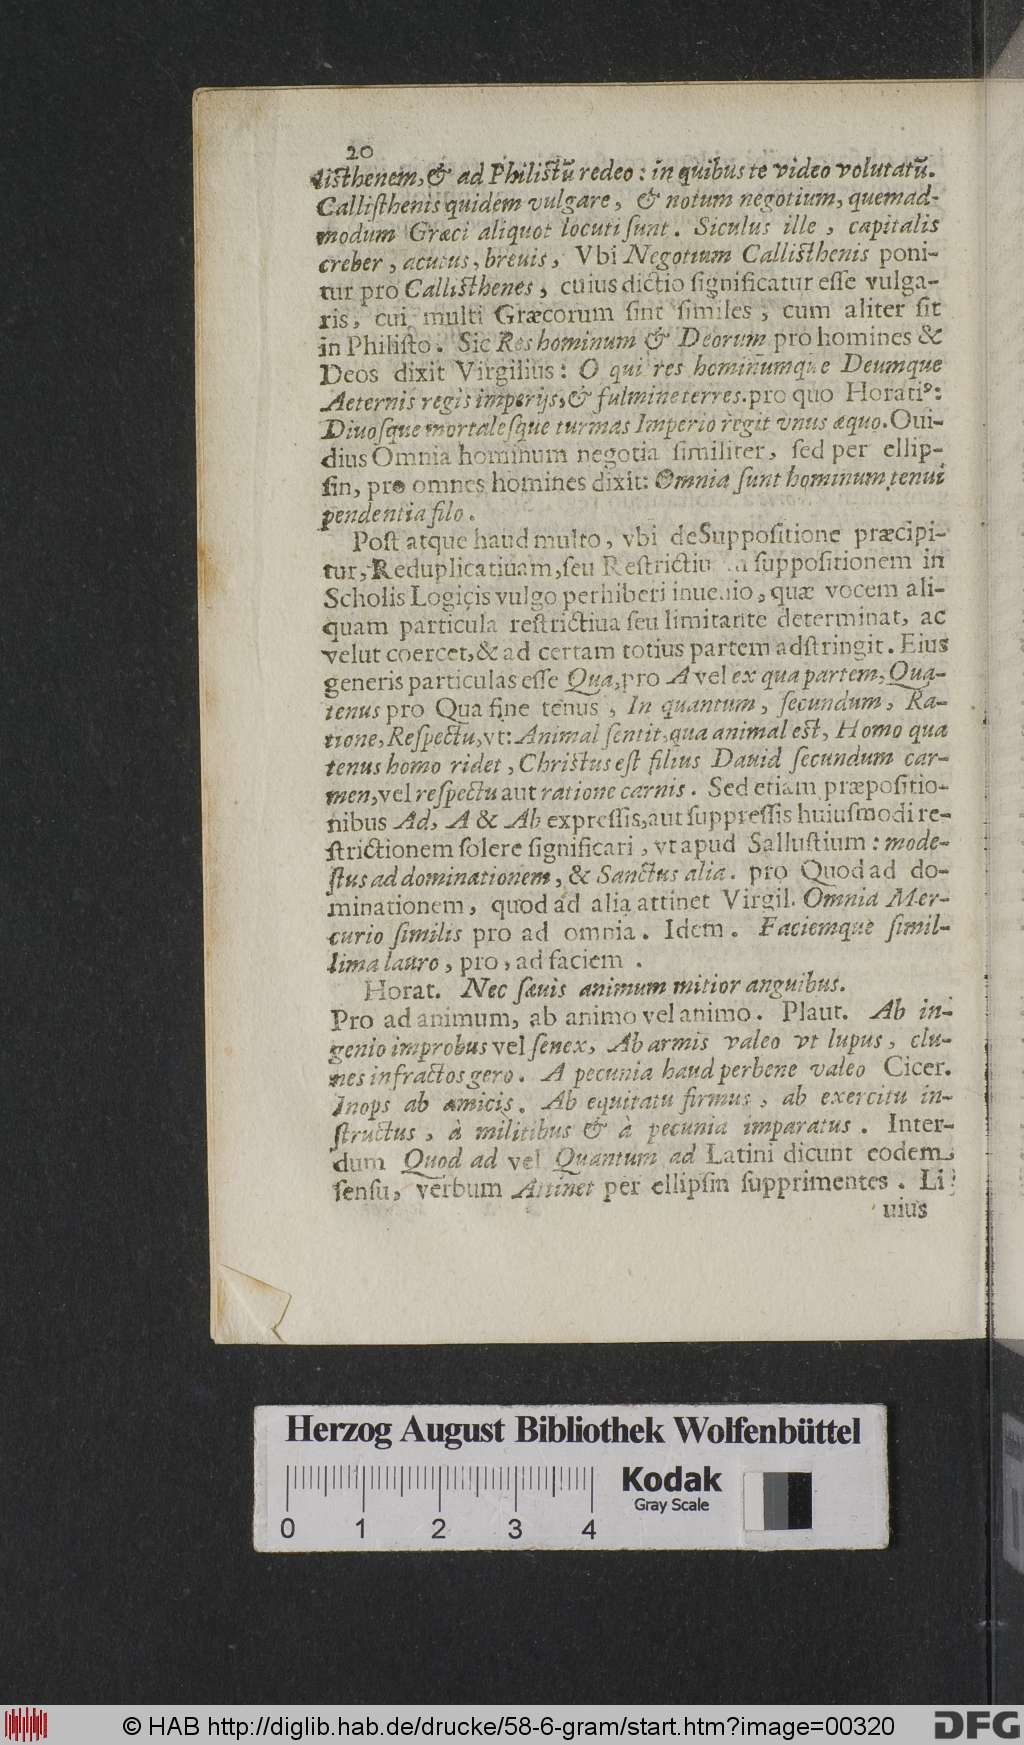 20
listhenem, & ad Philistū redeo: in quibus te video volutatū.
Callisthenis quidem vulgare, & notum negotium, quemad-
modum Græci aliquot locuti sunt. Siculus ille, capitalis
creber, acutus, breuis, Vbi Negotium Callisthenis poni-
tur pro Callisthenes, cuius dictio significatur esse vulga-
ris, cui multi Græcorum sint similes, cum aliter sit
in Philisto. Sic Res hominum & Deorum pro homines &
Deos dixit Virgilius: O qui res hominumque Deumque
Aeternis regis imperijs, & fulmine terres. pro quo Horatiꝰ:
Diuosque mortalesque turmas Imperio regit vnus æquo. Oui-
dius Omnia hominum negotia similiter, sed per ellip-
sin, pro omnes homines dixit: Omnia sunt hominum tenui
pendentia filo.
Post atque haud multo, vbi de Suppositione præcipi-
tur, Reduplicatiuam, seu suppositionem in
Scholis Logicis vulgo perhiberi inuenio, quæ vocem ali-
quam particula restrictiua seu limitante determinat, ac
velut coercet, & ad certam totius partem adstringit. Eius
generis particulas esse Qua, pro A vel ex qua partem, Qua-
tenus pro Qua fine tenus, In quantum, secundum, Ra-
tione, Respectu, vt: Animal sentit, qua animal est, Homo qua
tenus homo ridet, Christus est filius Dauid secundum car-
men, vel respectu aut ratione carnis. Sed etiam præpositio-
nibus Ad, A & Ab expressis, aut suppressis huiusmodi re-
strictionem solere significari, vt apud Sallustium: mode-
stus ad dominationem, & Sanctus alia. pro Quod ad do-
minationem, quod ad alia attinet Virgil. Omnia Mer-
curio similis pro ad omnia. Idem. Faciemque simil-
lima lauro, pro, ad faciem.
Horat. Nec sæuis animum mitior anguibus.
Pro ad animum, ab animo vel animo. Plaut. Ab in-
genio improbus vel senex, Ab armis valeo vt lupus, clu-
nes infractos gero. A pecunia haud perbene valeo Cicer.
Inops ab amicis. Ab equitatu firmus, ab exercitu in-
structus, à militibus & à pecunia imparatus. Inter-
dum Quod ad vel Quantum ad Latini dicunt eodem
sensu, verbum Attinet per ellipsin supprimentes. Li
uius
Herzog August Bibliothek Wolfenbüttel
0 1 2 3 4
Kodak
Gray Scale
© HAB http://diglib.hab.de/drucke/58-6-gram/start.htm?image=00320
DFG